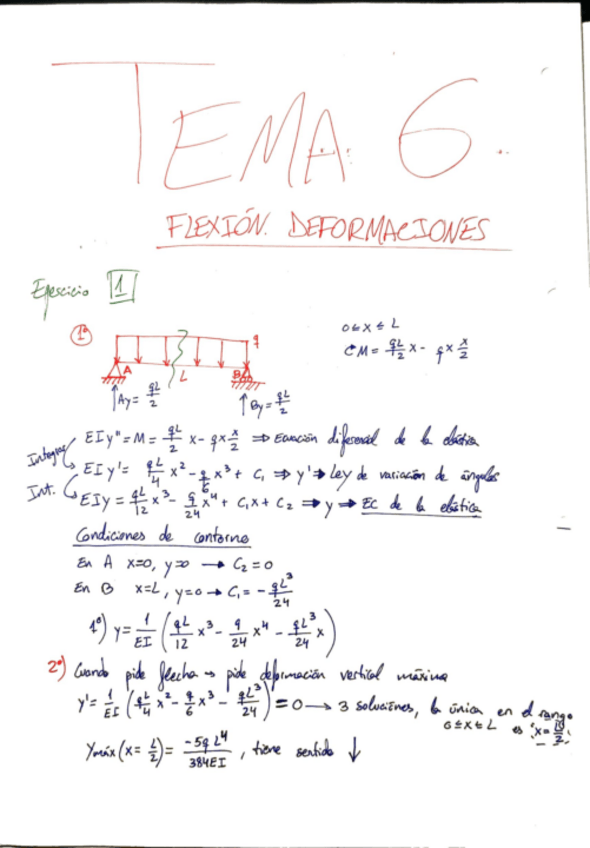 TEMA 6.
FLEXIÓN. DEFORMACIONES
Ejercicio 1
1º
q
A
L
B
Ay = qL/2
By = qL/2
0 ≤ x ≤ L
M = qL/2 x - q x x/2
EIy'' = M = qL/2 x - q x x/2 ⇒ Ecuación diferencial de la elástica
Integrar
EIy' = qL/4 x² - q/6 x³ + C₁ ⇒ y' ⇒ Ley de variación de ángulos
Int.
EIy = qL/12 x³ - q/24 x⁴ + C₁x + C₂ ⇒ y ⇒ EC de la elástica
Condiciones de contorno
En A x=0, y=0 → C₂=0
En B x=L, y=0 → C₁ = - qL³/24
1º) y = 1/EI (qL/12 x³ - q/24 x⁴ - qL³/24 x)
2º) Cuando pide flecha → pide deformación vertical máxima
y' = 1/EI (qL/4 x² - q/6 x³ - qL³/24) = 0 → 3 soluciones, la única en el rango
0 ≤ x ≤ L es x =
Ymáx (x = L/2) = -5qL⁴/384EI, tiene sentido ↓